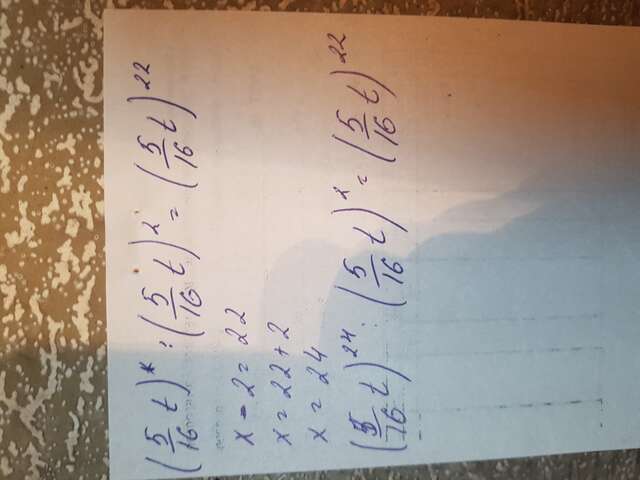 (5/16 t)^x : (5/16 t)^2 = (5/16 t)^22
x - 2 = 22
x = 22 + 2
x = 24
(5/16 t)^24 : (5/16 t)^2 = (5/16 t)^22